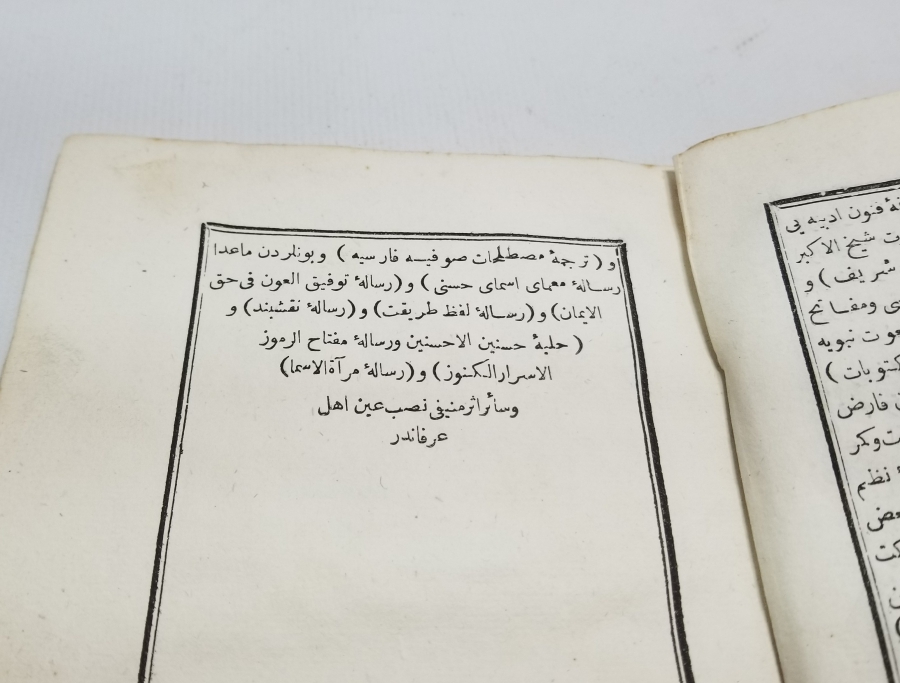 نهٔ فنون ادبیه یی
ت شیخ الاکبر
شریف) و
ی ومفاتح
عوت نبویه
کتوبات)
فارض
ت وکر
نظم
بعض
کت
و (ترجمهٔ مصطلحات صوفیه فارسیه) وبونلردن ماعدا
رسالهٔ معمای اسمای حسنی) و(رسالهٔ توفیق العون فی حق
الایمان) و(رسالهٔ لفظ طریقت) و(رسالهٔ نقشبند) و
(حلیهٔ حسنین الاحسنین ورسالهٔ مفتاح الرموز
الاسرار الکنوز) و(رسالهٔ مرآة الاسما)
وسائر اثر منیفی نصب عین اهل
عرفاندر